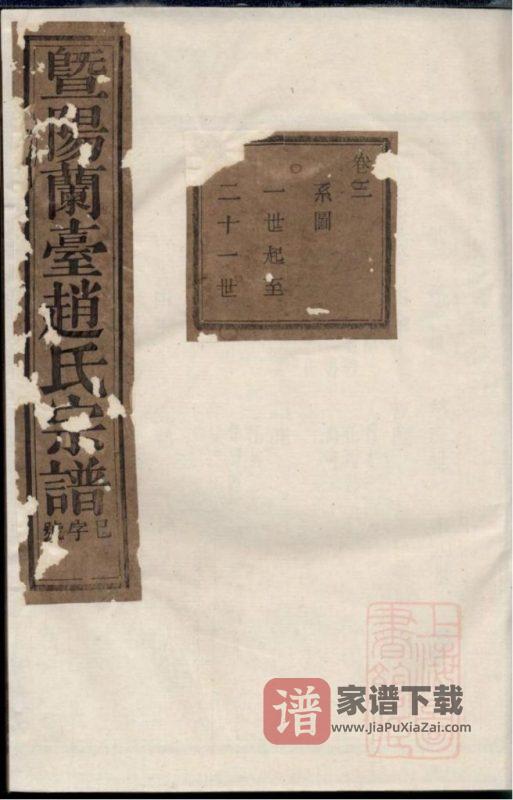 暨陽蘭臺趙氏宗譜
巳字號
卷三
系圖
一世起至
二十一世
上海圖書館藏
谱 家谱下载
www.JiaPuXiaZai.com